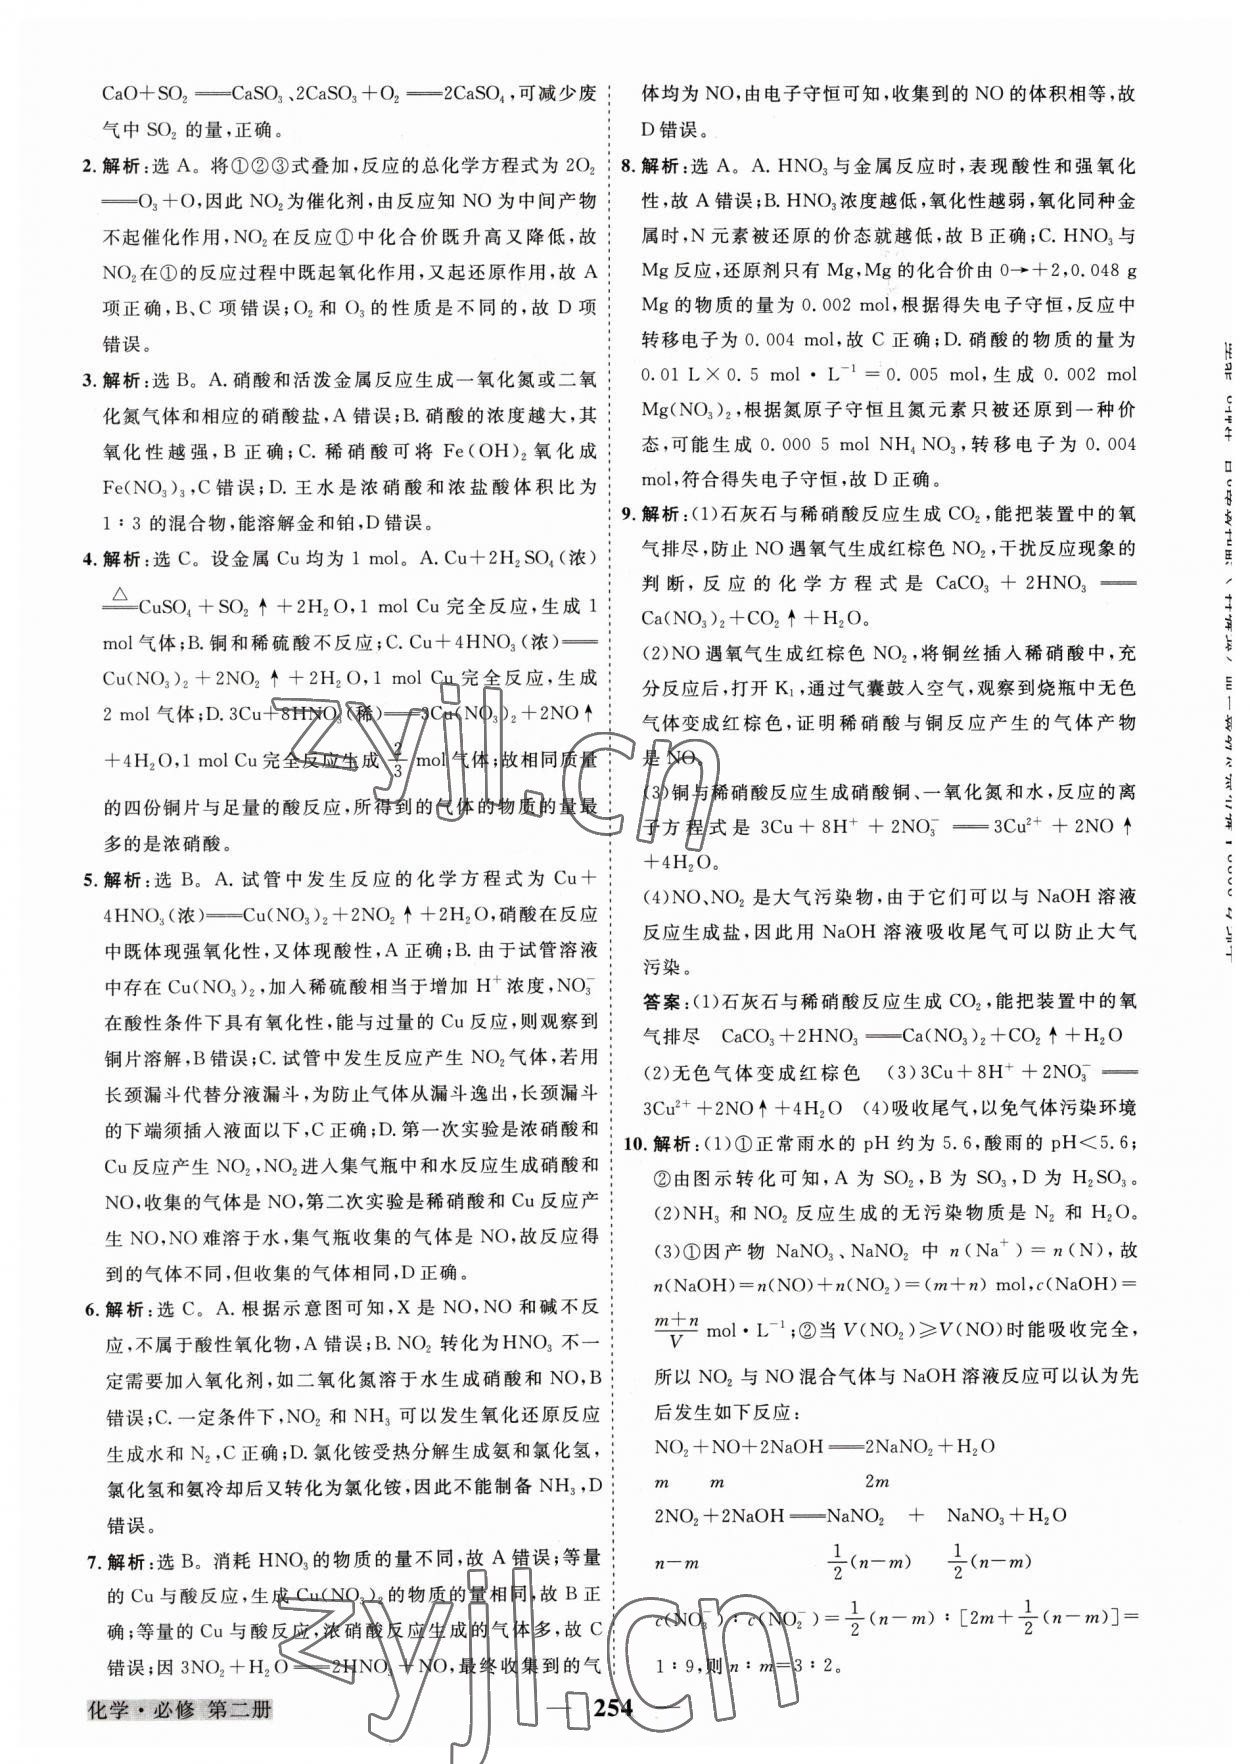 CaO+SO₂══CaSO₃、2CaSO₃+O₂══2CaSO₄,可减少废
气中 SO₂ 的量,正确。
2. 解析:选 A。将①②③式叠加,反应的总化学方程式为 2O₂
══O₃+O,因此 NO₂ 为催化剂,由反应知 NO 为中间产物
不起催化作用,NO₂ 在反应①中化合价既升高又降低,故
NO₂ 在①的反应过程中既起氧化作用,又起还原作用,故 A
项正确,B、C 项错误;O₂ 和 O₃ 的性质是不同的,故 D 项
错误。
3. 解析:选 B。A. 硝酸和活泼金属反应生成一氧化氮或二氧
化氮气体和相应的硝酸盐,A 错误;B. 硝酸的浓度越大,其
氧化性越强,B 正确;C. 稀硝酸可将 Fe(OH)₂ 氧化成
Fe(NO₃)₃,C 错误;D. 王水是浓硝酸和浓盐酸体积比为
1∶3 的混合物,能溶解金和铂,D 错误。
4. 解析:选 C。设金属 Cu 均为 1 mol。A. Cu+2H₂SO₄(浓)
△══CuSO₄+SO₂↑+2H₂O,1 mol Cu 完全反应,生成 1
mol 气体;B. 铜和稀硫酸不反应;C. Cu+4HNO₃(浓)══
Cu(NO₃)₂+2NO₂↑+2H₂O,1 mol Cu 完全反应,生成
2 mol 气体;D. 3Cu+8HNO₃(稀)══3Cu(NO₃)₂+2NO↑
+4H₂O,1 mol Cu 完全反应生成 2/3 mol 气体;故相同质量
的四份铜片与足量的酸反应,所得到的气体的物质的量最
多的是浓硝酸。
5. 解析:选 B。A. 试管中发生反应的化学方程式为 Cu+
4HNO₃(浓)══Cu(NO₃)₂+2NO₂↑+2H₂O,硝酸在反应
中既体现强氧化性,又体现酸性,A 正确;B. 由于试管溶液
中存在 Cu(NO₃)₂,加入稀硫酸相当于增加 H⁺ 浓度,NO₃⁻
在酸性条件下具有氧化性,能与过量的 Cu 反应,则观察到
铜片溶解,B 错误;C. 试管中发生反应产生 NO₂ 气体,若用
长颈漏斗代替分液漏斗,为防止气体从漏斗逸出,长颈漏斗
的下端须插入液面以下,C 正确;D. 第一次实验是浓硝酸和
Cu 反应产生 NO₂,NO₂ 进入集气瓶中和水反应生成硝酸和
NO,收集的气体是 NO,第二次实验是稀硝酸和 Cu 反应产
生 NO,NO 难溶于水,集气瓶收集的气体是 NO,故反应得
到的气体不同,但收集的气体相同,D 正确。
6. 解析:选 C。A. 根据示意图可知,X 是 NO,NO 和碱不反
应,不属于酸性氧化物,A 错误;B. NO₂ 转化为 HNO₃ 不一
定需要加入氧化剂,如二氧化氮溶于水生成硝酸和 NO,B
错误;C. 一定条件下,NO₂ 和 NH₃ 可以发生氧化还原反应
生成水和 N₂,C 正确;D. 氯化铵受热分解生成氨和氯化氢,
氯化氢和氨冷却后又转化为氯化铵,因此不能制备 NH₃,D
错误。
7. 解析:选 B。消耗 HNO₃ 的物质的量不同,故 A 错误;等量
的 Cu 与酸反应,生成 Cu(NO₃)₂ 的物质的量相同,故 B 正
确;等量的 Cu 与酸反应,浓硝酸反应生成的气体多,故 C
错误;因 3NO₂+H₂O══2HNO₃+NO,最终收集到的气
体均为 NO,由电子守恒可知,收集到的 NO 的体积相等,故
D 错误。
8. 解析:选 A。A. HNO₃ 与金属反应时,表现酸性和强氧化
性,故 A 错误;B. HNO₃ 浓度越低,氧化性越弱,氧化同种金
属时,N 元素被还原的价态就越低,故 B 正确;C. HNO₃ 与
Mg 反应,还原剂只有 Mg,Mg 的化合价由 0→+2,0.048 g
Mg 的物质的量为 0.002 mol,根据得失电子守恒,反应中
转移电子为 0.004 mol,故 C 正确;D. 硝酸的物质的量为
0.01 L×0.5 mol·L⁻¹=0.005 mol,生成 0.002 mol
Mg(NO₃)₂,根据氮原子守恒且氮元素只还原到一种价
态,可能生成 0.000 5 mol NH₄NO₃,转移电子为 0.004
mol,符合得失电子守恒,故 D 正确。
9. 解析:(1)石灰石与稀硝酸反应生成 CO₂,能把装置中的氧
气排尽,防止 NO 遇氧气生成红棕色 NO₂,干扰反应现象的
判断,反应的化学方程式是 CaCO₃+2HNO₃══
Ca(NO₃)₂+CO₂↑+H₂O。
(2)NO 遇氧气生成红棕色 NO₂,将铜丝插入稀硝酸中,充
分反应后,打开 K₁,通过气囊鼓入空气,观察到烧瓶中无色
气体变成红棕色,证明稀硝酸与铜反应产生的气体产物
是 NO。
(3)铜与稀硝酸反应生成硝酸铜、一氧化氮和水,反应的离
子方程式是 3Cu+8H⁺+2NO₃⁻══3Cu²⁺+2NO↑
+4H₂O。
(4)NO、NO₂ 是大气污染物,由于它们可以与 NaOH 溶液
反应生成盐,因此用 NaOH 溶液吸收尾气可以防止大气
污染。
答案:(1)石灰石与稀硝酸反应生成 CO₂,能把装置中的氧
气排尽 CaCO₃+2HNO₃══Ca(NO₃)₂+CO₂↑+H₂O
(2)无色气体变成红棕色 (3)3Cu+8H⁺+2NO₃⁻══
3Cu²⁺+2NO↑+4H₂O (4)吸收尾气,以免气体污染环境
10. 解析:(1)①正常雨水的 pH 约为 5.6,酸雨的 pH<5.6;
②由图示转化可知,A 为 SO₂,B 为 SO₃,D 为 H₂SO₃。
(2)NH₃ 和 NO₂ 反应生成的无污染物质是 N₂ 和 H₂O。
(3)①因产物 NaNO₃、NaNO₂ 中 n(Na⁺)=n(N),故
n(NaOH)=n(NO)+n(NO₂)=(m+n) mol,c(NaOH)=
(m+n)/V mol·L⁻¹;②当 V(NO₂)≥V(NO)时能吸收完全,
所以 NO₂ 与 NO 混合气体与 NaOH 溶液反应可以认为先
后发生如下反应:
NO₂+NO+2NaOH══2NaNO₂+H₂O
m m 2m
2NO₂+2NaOH══NaNO₂ + NaNO₃+H₂O
n−m 1/2(n−m) 1/2(n−m)
c(NO₃⁻)∶c(NO₂⁻)=1/2(n−m)∶[2m+1/2(n−m)]=
1∶9,则 n∶m=3∶2。
化学·必修 第二册
— 254 —
zyjl.cn
zyjl.cn